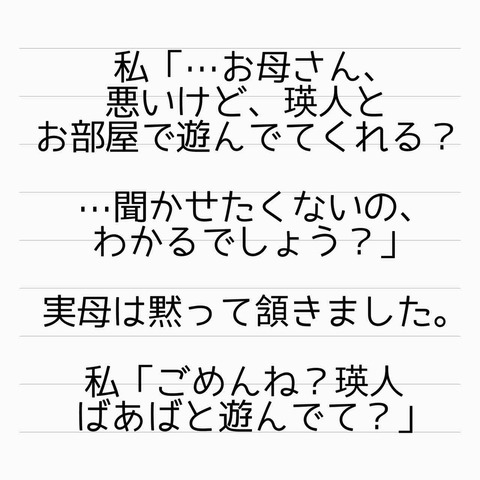 私「…お母さん、
悪いけど、瑛人と
お部屋で遊んでてくれる？
…聞かせたくないの、
わかるでしょう？」
実母は黙って頷きました。
私「ごめんね？瑛人
ばあばと遊んでて？」